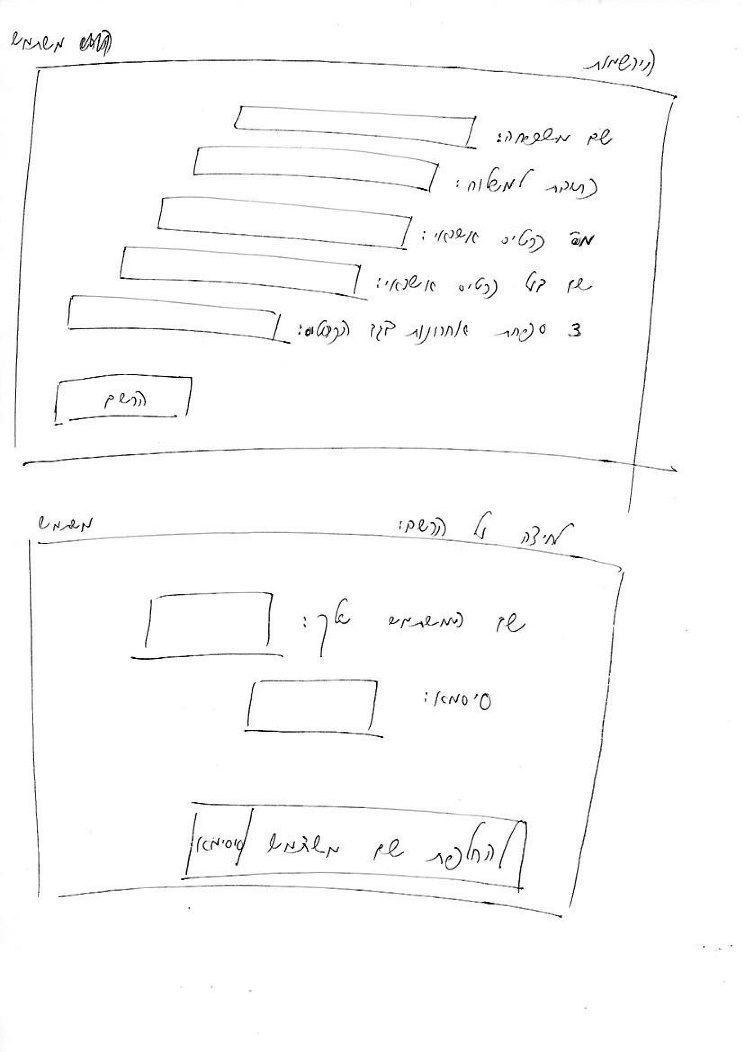 הירשמות
משתמש
שם משפחה:
כתובת למשלוח:
מס' כרטיס אשראי:
שם בעל כרטיס אשראי:
3 ספרות אחרונות בגב הכרטיס:
הרשם
לחיצה על הרשם:
משתמש
שם המשתמש שלך:
סיסמא:
להחלפת שם משתמש
סיסמא